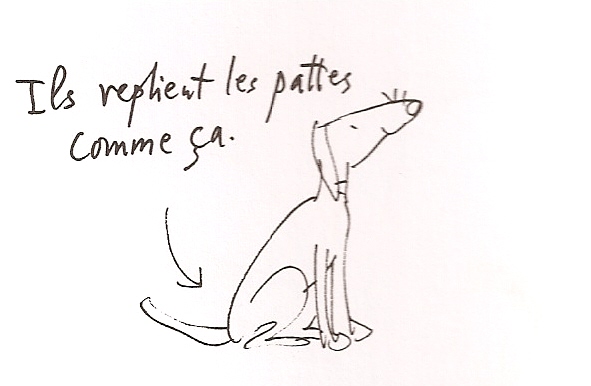 Ils replient les pattes
comme ça.